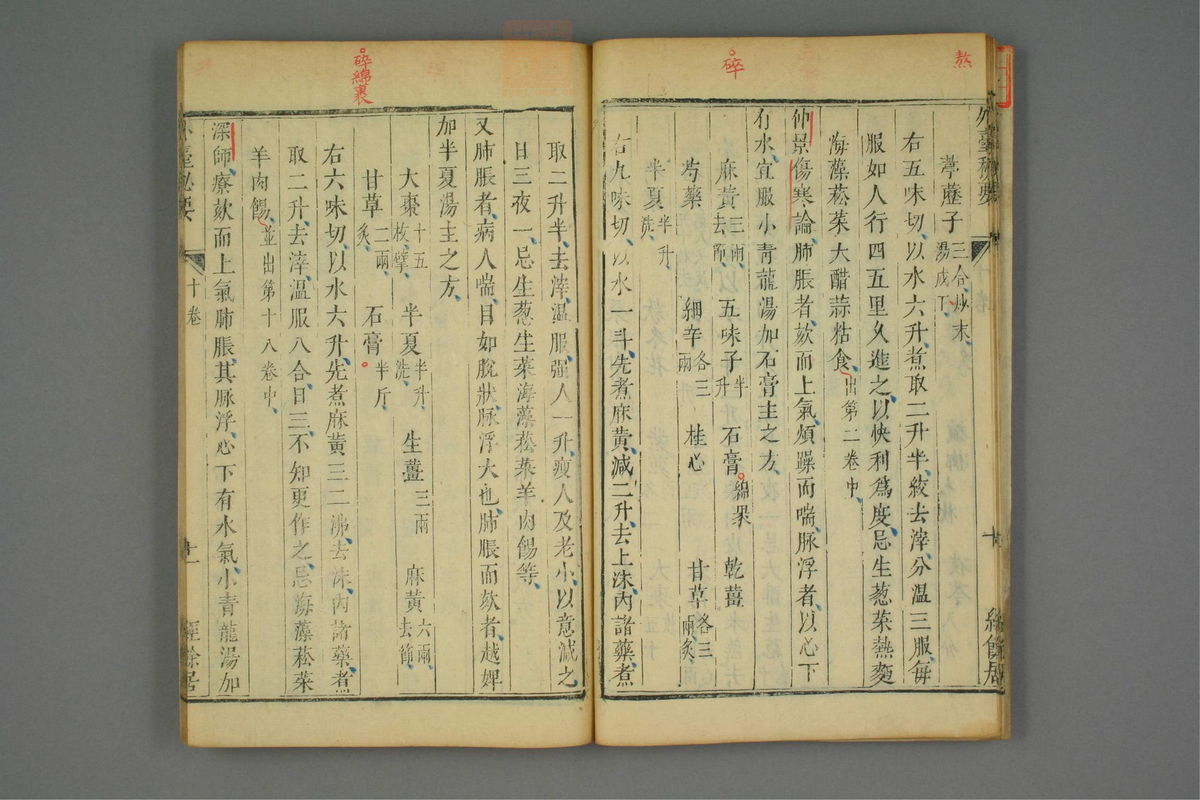 熬
碎
外臺秘要
十
經餘居
葶藶子三合炒末
湯成下
右五味切以水六升煮取二升半絞去滓分温三服每
服如人行四五里久進之以快利爲度忌生葱菜熱麵
海藻菘菜大醋蒜粘食出第二卷中
仲景傷寒論肺脹者欬而上氣煩躁而喘脉浮者以心下
有水宜服小青龍湯加石膏主之方
麻黃三兩去節 五味子半升 石膏綿裹 乾薑
芍藥 細辛各三兩 桂心 甘草各三兩炙
半夏半升洗
右九味切以水一斗先煮麻黃減二升去上沫內諸藥煮
碎綿裹
取二升半去滓温服强人一升瘦人及老小以意減之
日三夜一忌生葱生菜海藻菘菜羊肉餳等
又肺脹者病人喘目如脫狀脉浮大也肺脹而欬者越婢
加半夏湯主之方
大棗十五枚擘 半夏半升洗 生薑三兩 麻黃六兩去節
甘草二兩炙 石膏半斤
右六味切以水六升先煮麻黃三二沸去沫內諸藥煮
取二升去滓温服八合日三不知更作之忌海藻菘菜
羊肉餳並出第十八卷中
深師療欬而上氣肺脹其脉浮心下有水氣小青龍湯加
外臺秘要
十卷
十一
經餘居